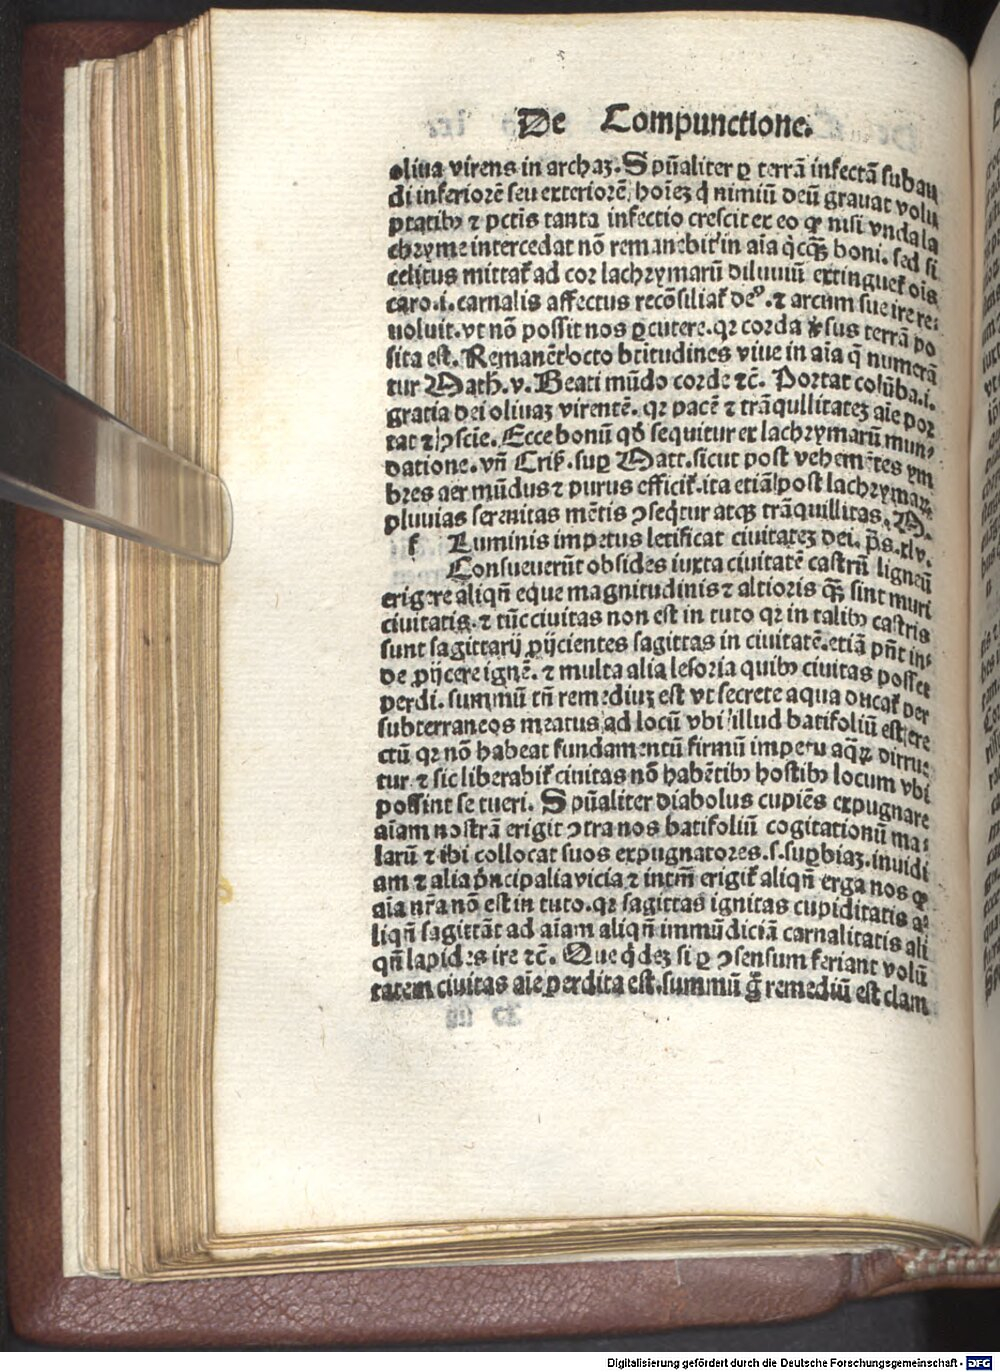 De Compunctione.
oliua virens in archaȝ. Spūaliter ꝑ terrā infectā subau
di inferiorē seu exteriorē, hoīeȝ ꝗ nimiū deū grauat volu
ptatibꝰ ⁊ pctīs tanta infectio crescit ex eo ꝙ nisi vnda la
chryme intercedat nō remanebit in aīa q̇cq̄ȝ boni. sed si
celitus mittat᷑ ad cor lachrymarū diluuiū extinguet᷑ oīs
caro .i. carnalis affectus recōsiliat᷑ deꝰ. ⁊ arcum sue ire re-
uoluit. vt nō possit nos ꝑcutere. qꝛ corda ꝟsus terrā po
sita est. Remanēt octo btītudines viue in aīa q̄ numerā
tur Math. v. Beati mūdo corde ⁊c̄. Portat colūba .i.
gratia dei oliuaȝ virentē. qꝛ pacē ⁊ trāqullitateȝ aīe por
tat ⁊ ꝯscīe. Ecce bonū qḋ sequitur ex lachrymarū mun-
datione. vn̄ Cris̄. suꝑ Matt. sicut post vehemētes ym
bres aer mūdus ⁊ purus efficit᷑. ita etiā post lachrymaꝝ
pluuias serenitas mētis ꝯseq̇tur atqȝ trāquillitas. M.
f Luminis impetus letificat ciuitateȝ dei. p̄s. xlv.
Consueuerūt obsides iuxta ciuitatē castrū ligneū
erigere aliqn̄ eque magnitudinis ⁊ altioris q̄ȝ sint muri
ciuitatis. ⁊ tūc ciuitas non est in tuto qꝛ in talibꝰ castris
sunt sagittarij ꝓijcientes sagittas in ciuitatē. etiā pn̄t in-
de ꝓijcere ignē. ⁊ multa alia lesoria quibꝰ ciuitas posset
perdi. summū tn̄ remediuȝ est vt secrete aqua ducat᷑ per
subterraneos meatus ad locū vbi illud batifoliū est ere
ctū qꝛ nō habeat fundamentū firmū impetu aq̄ꝝ dirrue
tur ⁊ sic liberabit᷑ ciuitas nō habētibꝰ hostibꝰ locum vbi
possint se tueri. Spūaliter diabolus cupiēs expugnare
aīam nostrā erigit ꝯtra nos batifoliū cogitationū ma-
larū ⁊ ibi collocat suos expugnatores .s. suꝑbiaȝ. inuidi
am ⁊ alia pͥncipalia vicia ⁊ intm̄ erigit᷑ aliqn̄ erga nos ꝙ
aīa nr̄a nō est in tuto. qꝛ sagittas ignitas cupiditatis a-
liqn̄ sagittāt ad aīam aliqn̄ immūdiciā carnalitatis ali
qn̄ lapides ire ⁊c̄. Que q̇deȝ si ꝑ ꝯsensum feriant volū
tatem ciuitas aīe perdita est. summū g̊ remediū est clam
Digitalisierung gefördert durch die Deutsche Forschungsgemeinschaft - DFG